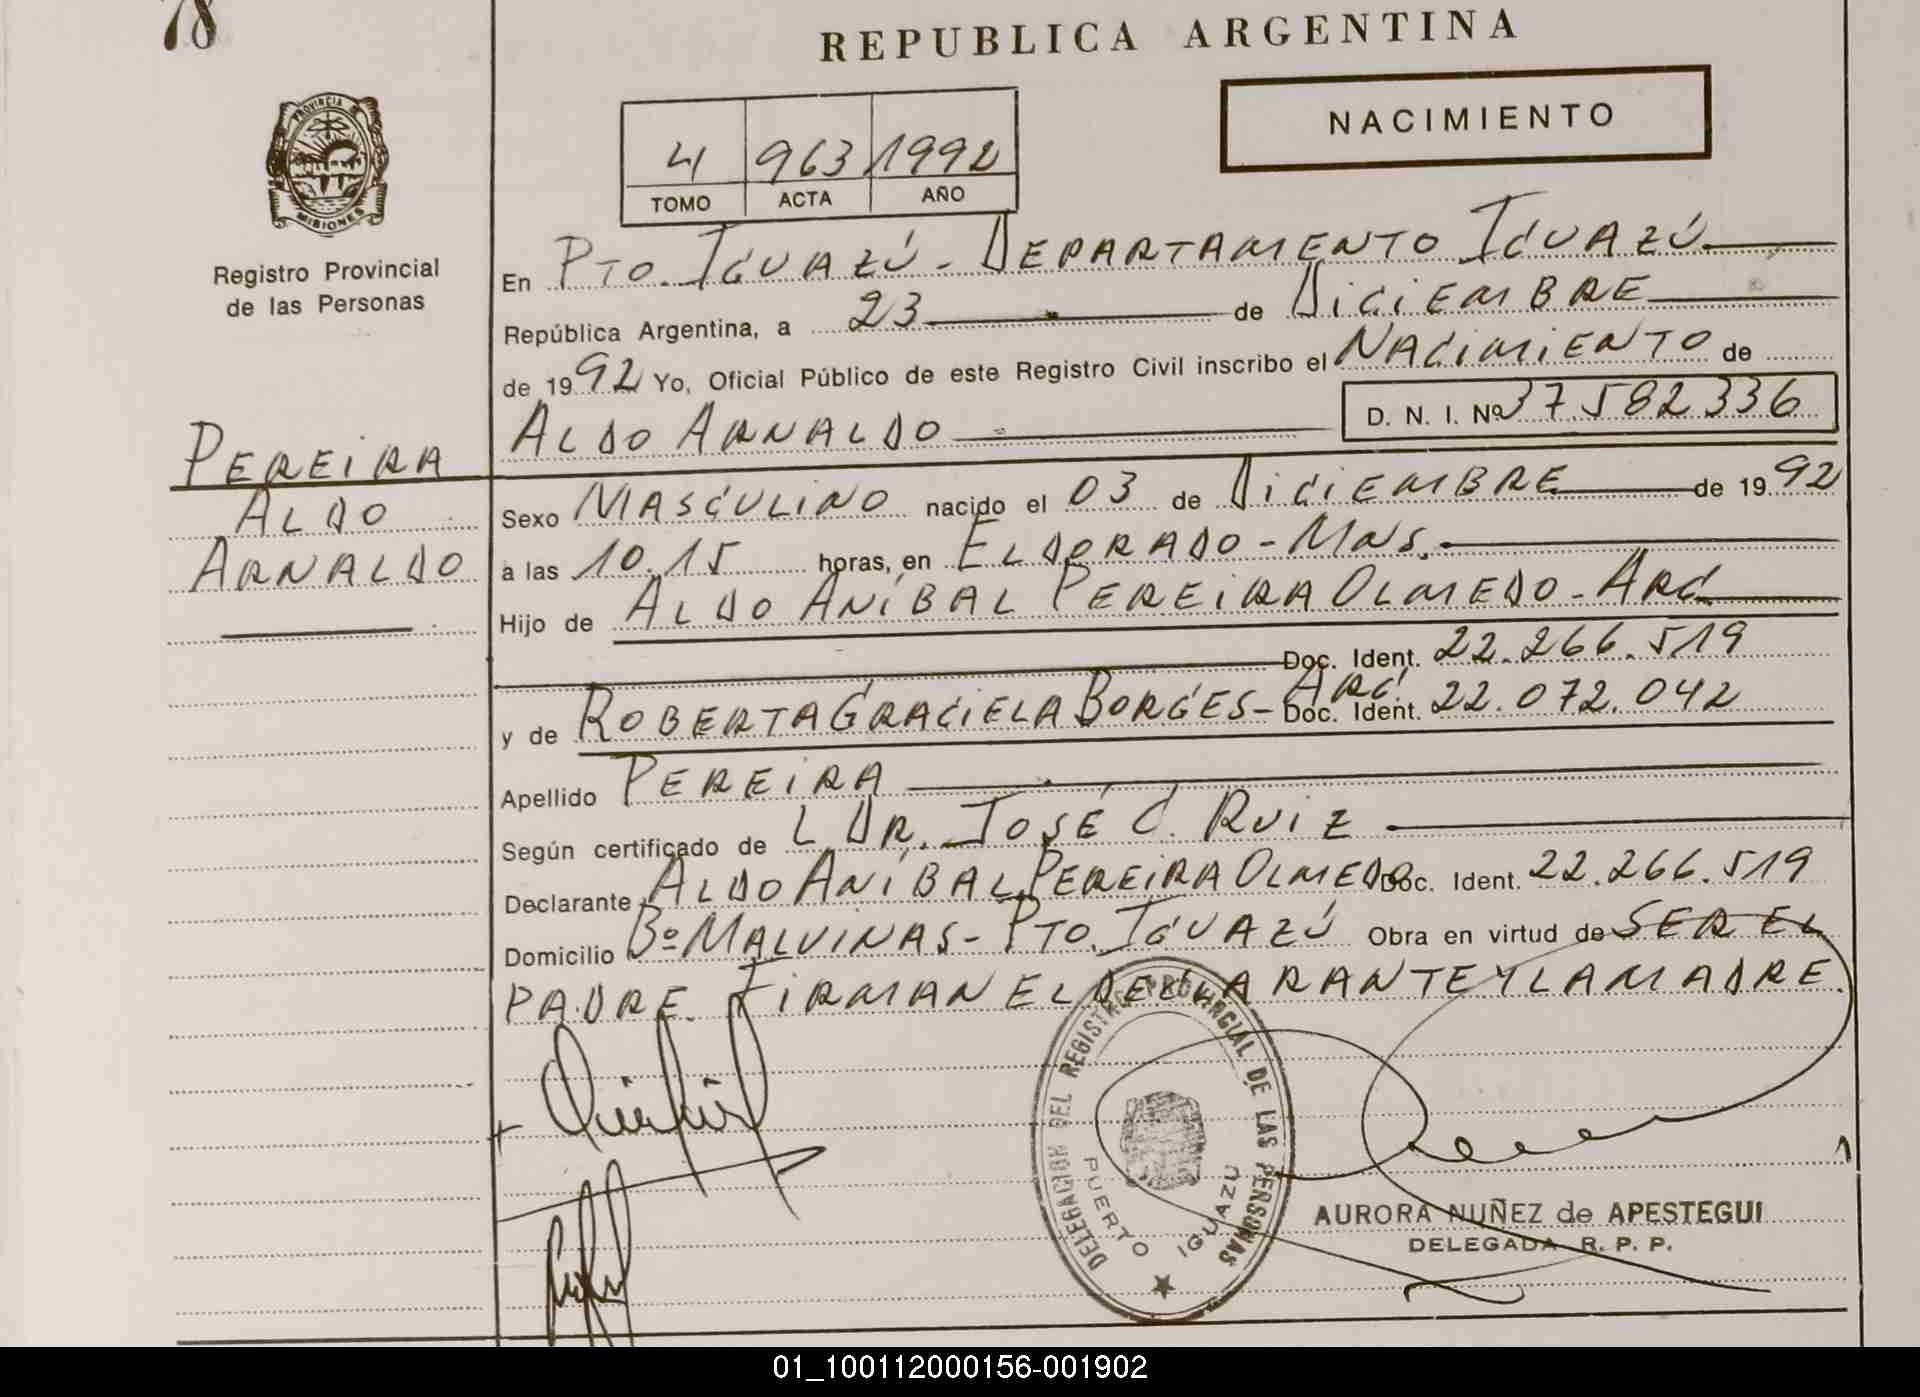 78
REPUBLICA ARGENTINA
NACIMIENTO
4 963 1992
TOMO ACTA AÑO
PROVINCIA DE
MISIONES
Registro Provincial
de las Personas
En PTO. IGUAZÚ - DEPARTAMENTO IGUAZÚ
República Argentina, a 23 de DICIEMBRE
de 1992 Yo, Oficial Público de este Registro Civil inscribo el NACIMIENTO de
ALDO ARNALDO D. N. I. Nº 37.582336
PEREIRA
ALDO
ARNALDO
Sexo MASCULINO nacido el 03 de DICIEMBRE de 1992
a las 10.15 horas, en ELDORADO - MNS.
Hijo de ALDO ANÍBAL PEREIRA OLMEDO - ARG.
Doc. Ident. 22.266.519
y de ROBERTA GRACIELA BORGES - ARG. Doc. Ident. 22.072.042
Apellido PEREIRA
Según certificado de L DR. JOSÉ C. RUIZ
Declarante ALDO ANÍBAL PEREIRA OLMEDO Doc. Ident. 22.266.519
Domicilio Bº MALVINAS - PTO. IGUAZÚ Obra en virtud de SER EL
PADRE. FIRMAN EL DECLARANTE Y LA MADRE.
DELEGACION DEL REGISTRO PROVINCIAL DE LAS PERSONAS
PUERTO IGUAZU
AURORA NUÑEZ de APESTEGUI
DELEGADA R. P. P.
01_100112000156-001902